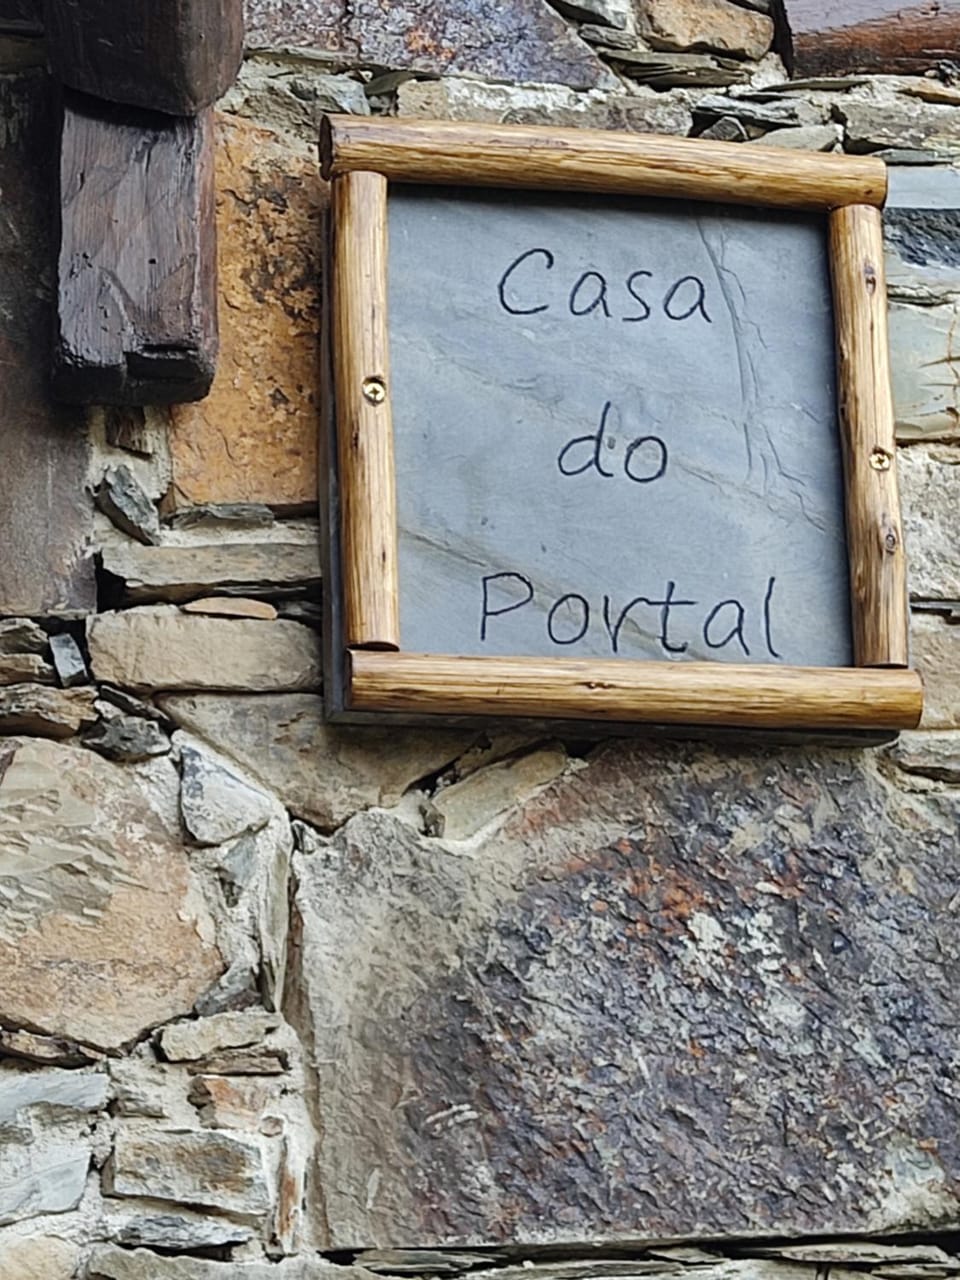 Casa
do
Portal